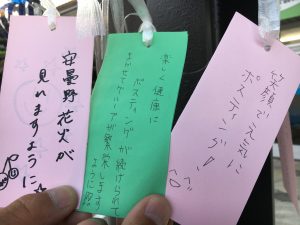 笑顔で元気に
ポスティング!
楽しく健康に
ポスティングが続けられて
まかせてグループが繁栄します
ように
安曇野花火が
見れますように☆